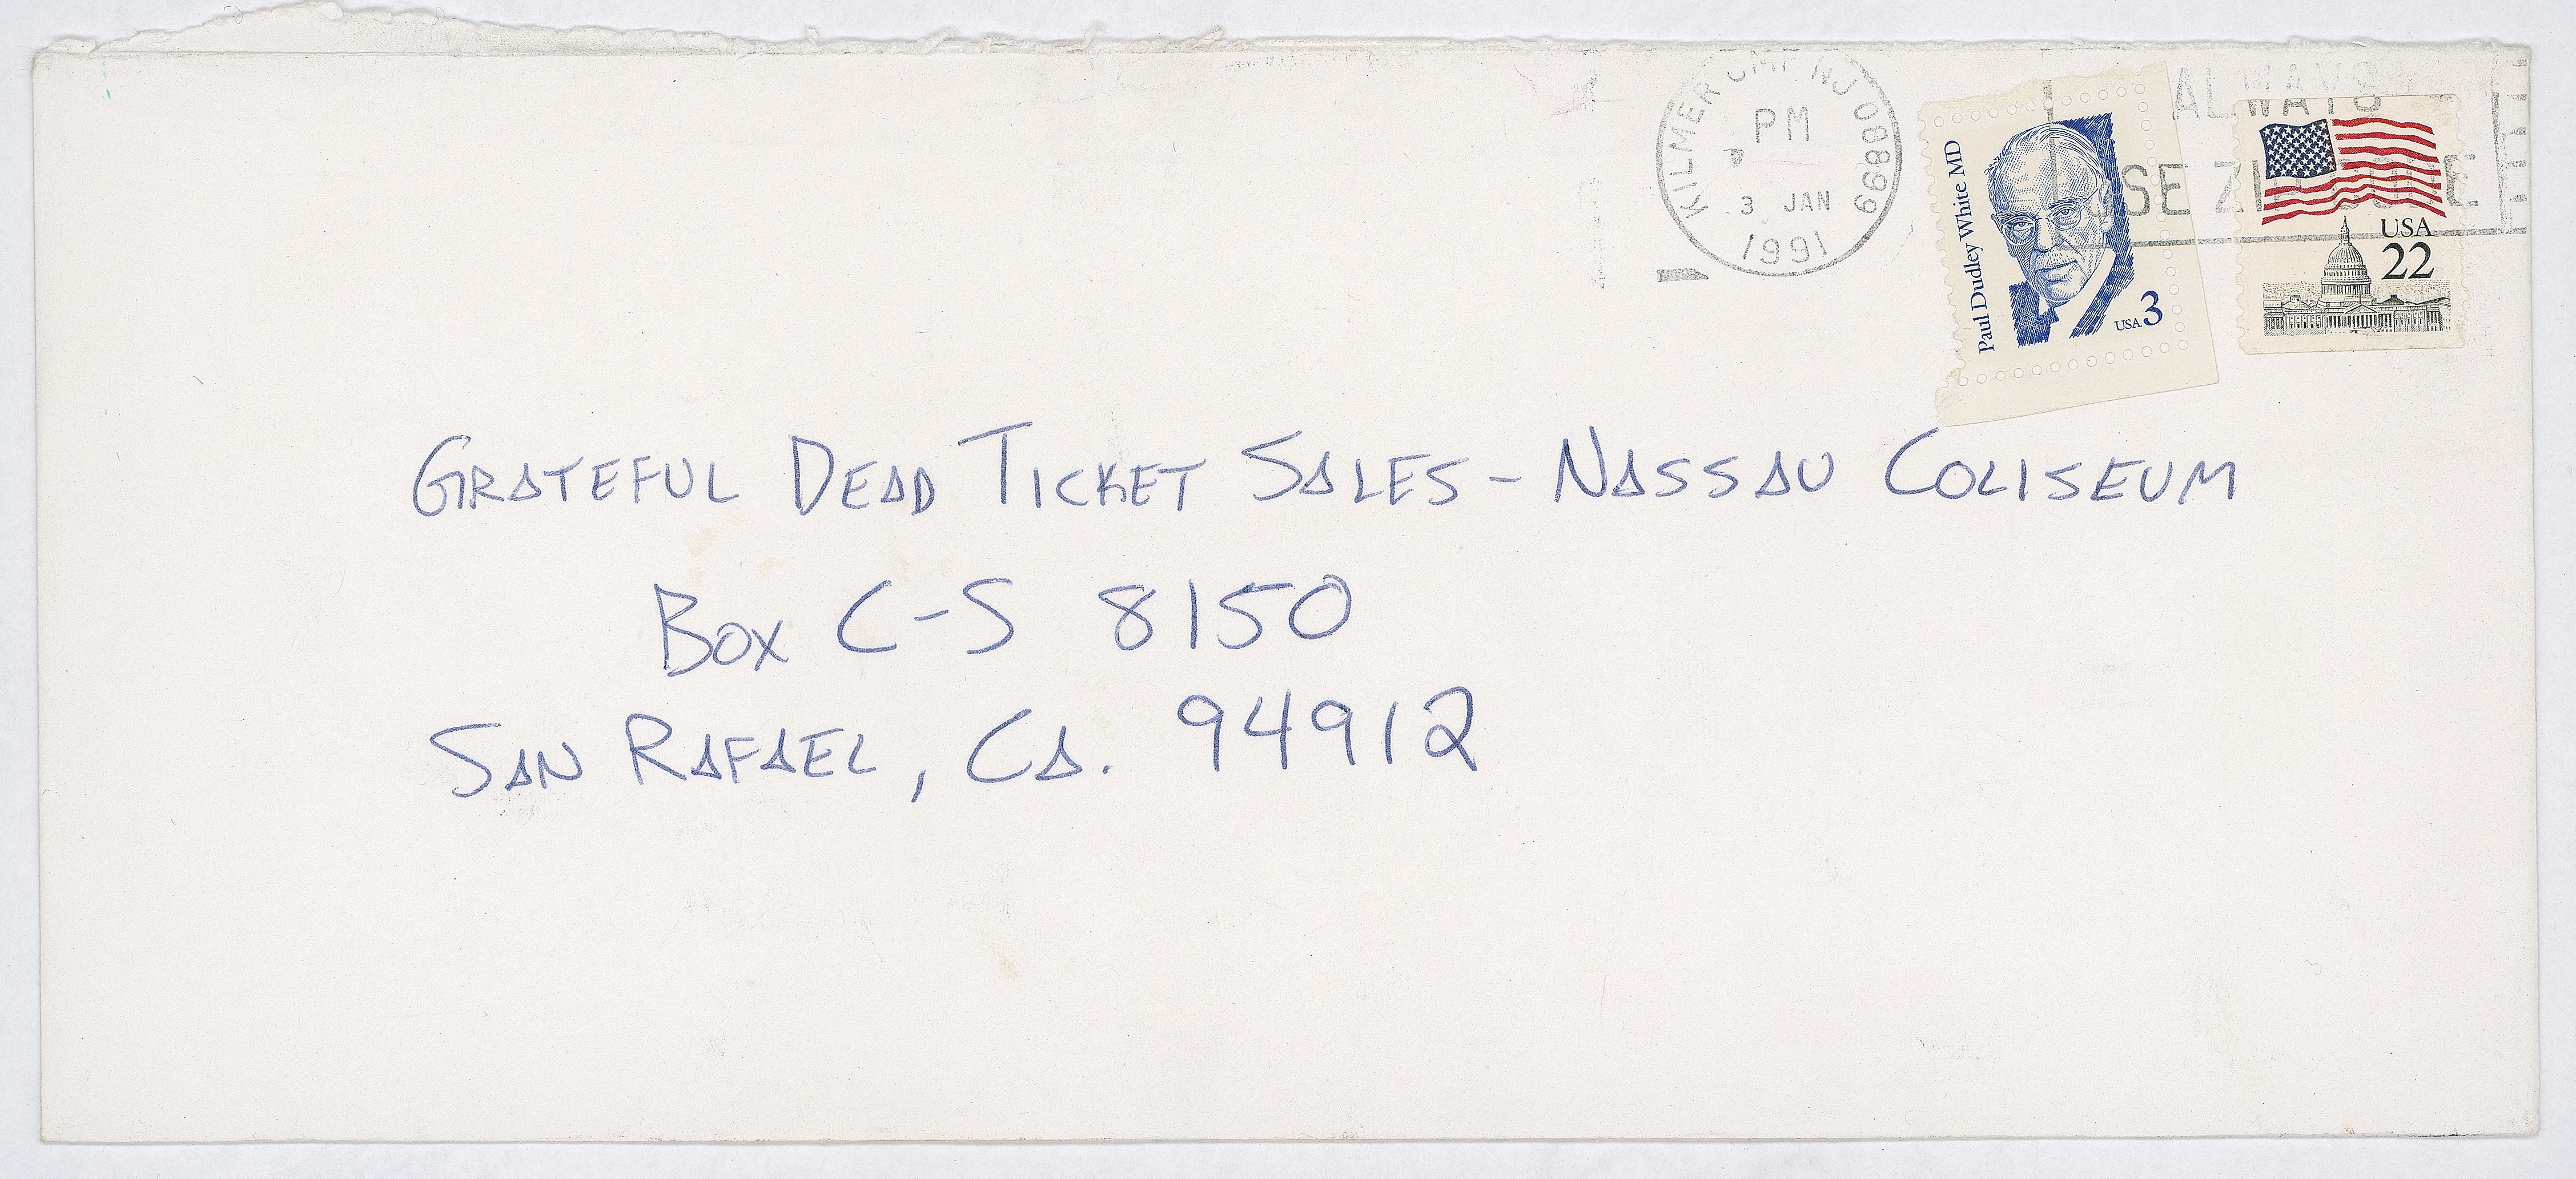 KILMER GMF NJ 08899
PM
3 JAN
1991
ALWAYS
Paul Dudley White MD
USA 3
USA
22
GRATEFUL DEAD TICKET SALES - NASSAU COLISEUM
BOX C-S 8150
SAN RAFAEL, CA. 94912